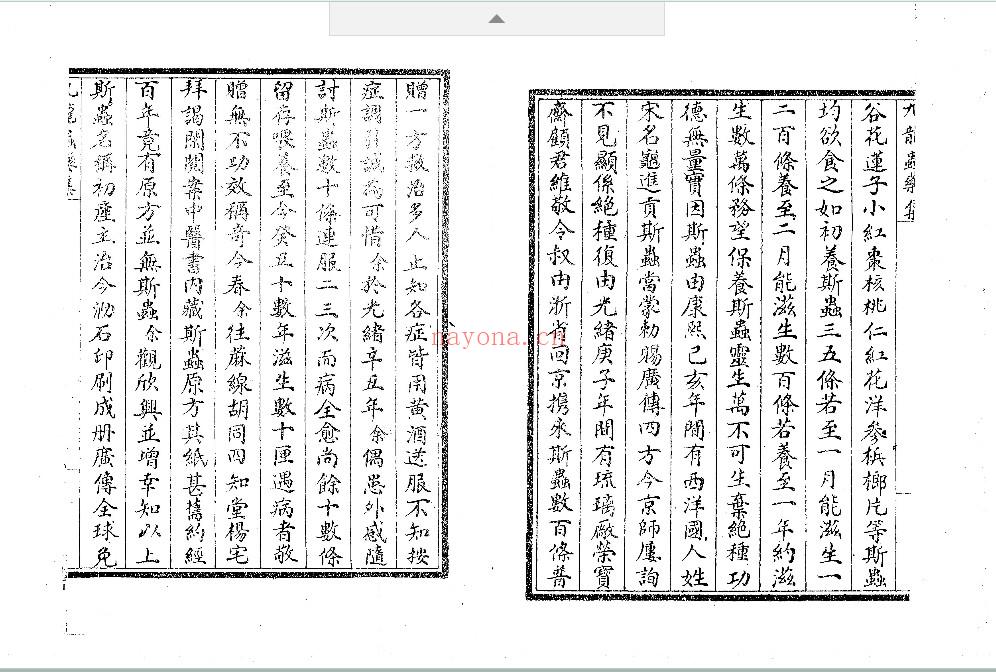 九龍蟲藥集
谷花蓮子小紅棗核桃仁紅花洋參梹榔片等斯蟲
均欲食之如初養斯蟲三五條若至一月能滋生一
二百條養至二月能滋生數百條若養至一年約滋
生數萬條務望保養斯蟲靈生萬不可生棄絕種功
德無量實因斯蟲由康熙己亥年間有西洋國人姓
宋名龜進貢斯蟲當蒙勅賜廣傳四方今京師屢詢
不見顯係絕種復由光緒庚子年間有琉璃廠榮寶
齋顧君維敬令叔由浙省回京携來斯蟲數百條普
贈一方救治多人止知各症皆用黃酒送服不知按
症調引誠為可惜余於光緒辛丑年余偶患外感隨
討斯蟲數十條連服二三次而病全愈尚餘十數條
留存喂養至今癸丑十數年滋生數十匣遇病者敬
贈無不功效稱奇今春余往蔴線胡同四知堂楊宅
拜謁閑閱案中醫書內藏斯蟲原方其紙甚舊約經
百年竟有原方並無斯蟲余觀欣興並增幸知以上
斯蟲名稱初產主治今泐石印刷成册廣傳全球免
nayona.cn